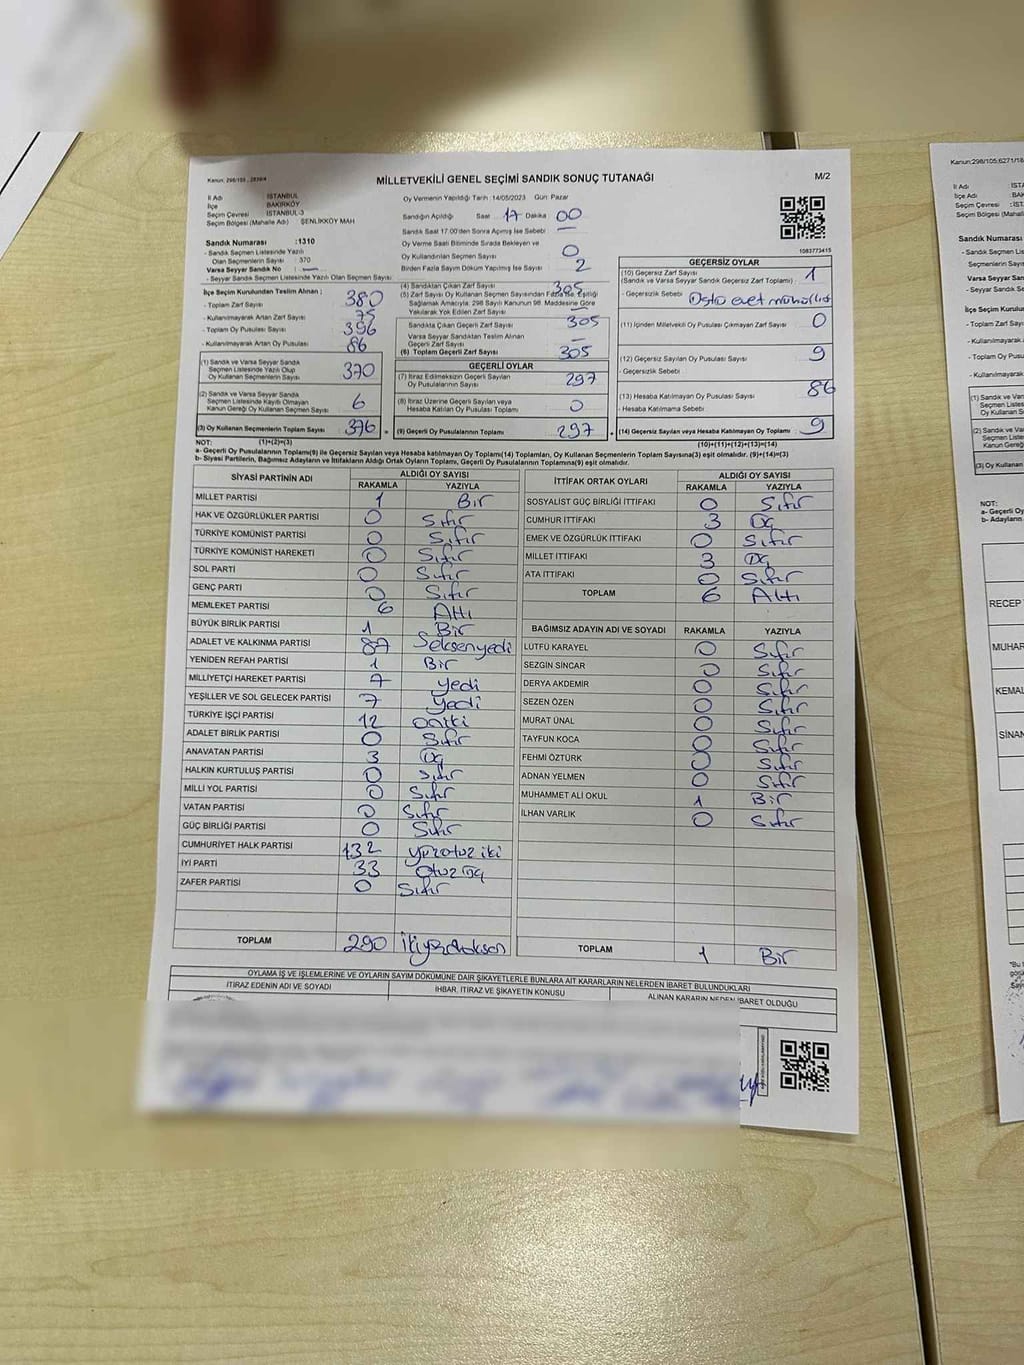 Kanun: 298/105 , 2839/4
MİLLETVEKİLİ GENEL SEÇİMİ SANDIK SONUÇ TUTANAĞI
M/2
İl Adı : İSTANBUL
İlçe : BAKIRKÖY
Seçim Çevresi : İSTANBUL-3
Seçim Bölgesi (Mahalle Adı) : ŞENLİKKÖY MAH
Sandık Numarası :1310
- Sandık Seçmen Listesinde Yazılı
Olan Seçmenlerin Sayısı : 370
Varsa Seyyar Sandık No : —
- Seyyar Sandık Seçmen Listesinde Yazılı Olan Seçmen Sayısı:
Oy Vermenin Yapıldığı Tarih :14/05/2023 Gün: Pazar
Sandığın Açıldığı Saat 17 Dakika 00
Sandık Saat 17.00'den Sonra Açılmış İse Sebebi —
Oy Verme Saati Bitiminde Sırada Bekleyen ve
Oy Kullandırılan Seçmen Sayısı 0
Birden Fazla Sayım Döküm Yapılmış İse Sayısı 2
1083773415
İlçe Seçim Kurulundan Teslim Alınan ;
- Toplam Zarf Sayısı 380
- Kullanılmayarak Artan Zarf Sayısı 75
- Toplam Oy Pusulası Sayısı 396
- Kullanılmayarak Artan Oy Pusulası 86
(1) Sandık ve Varsa Seyyar Sandık
Seçmen Listesinde Yazılı Olup
Oy Kullanan Seçmenlerin Sayısı 370
(2) Sandık ve Varsa Seyyar Sandık
Seçmen Listesinde Kayıtlı Olmayan
Kanun Gereği Oy Kullanan Seçmen Sayısı 6
(3) Oy Kullanan Seçmenlerin Toplam Sayısı 376 =
(4) Sandıktan Çıkan Zarf Sayısı 305
(5) Zarf Sayısı Oy Kullanan Seçmen Sayısından Fazla İse, Eşitliği
Sağlamak Amacıyla, 298 Sayılı Kanunun 98. Maddesine Göre
Yakılarak Yok Edilen Zarf Sayısı —
Sandıkta Çıkan Geçerli Zarf Sayısı 305
Varsa Seyyar Sandıktan Teslim Alınan
Geçerli Zarf Sayısı —
(6) Toplam Geçerli Zarf Sayısı 305
GEÇERLİ OYLAR
(7) İtiraz Edilmeksizin Geçerli Sayılan
Oy Pusulalarının Sayısı 297
(8) İtiraz Üzerine Geçerli Sayılan veya
Hesaba Katılan Oy Pusulası Toplamı 0
(9) Geçerli Oy Pusulalarının Toplamı 297 +
GEÇERSİZ OYLAR
(10) Geçersiz Zarf Sayısı
(Sandık ve Varsa Seyyar Sandık Geçersiz Zarf Toplamı) : 1
- Geçersizlik Sebebi :
(11) İçinden Milletvekili Oy Pusulası Çıkmayan Zarf Sayısı 0
(12) Geçersiz Sayılan Oy Pusulası Sayısı 9
- Geçersizlik Sebebi
(13) Hesaba Katılmayan Oy Pusulası Sayısı 86
- Hesaba Katılmama Sebebi
(14) Geçersiz Sayılan veya Hesaba Katılmayan Oy Toplamı 9
NOT: (1)+(2)=(3) (10)+(11)+(12)+(13)=(14)
a- Geçerli Oy Pusulalarının Toplamı(9) ile Geçersiz Sayılan veya Hesaba Katılmayan Oy Toplamı(14) Toplamları, Oy Kullanan Seçmenlerin Toplam Sayısına(3) eşit olmalıdır. (9)+(14)=(3)
b- Siyasi Partilerin, Bağımsız Adayların ve İttifakların Aldığı Ortak Oyların Toplamı, Geçerli Oy Pusulalarının Toplamına(9) eşit olmalıdır.
SİYASİ PARTİNİN ADI ALDIĞI OY SAYISI
RAKAMLA YAZIYLA
MİLLET PARTİSİ 1 Bir
HAK VE ÖZGÜRLÜKLER PARTİSİ 0 Sıfır
TÜRKİYE KOMÜNİST PARTİSİ 0 Sıfır
TÜRKİYE KOMÜNİST HAREKETİ 0 Sıfır
SOL PARTİ 0 Sıfır
GENÇ PARTİ 0 Sıfır
MEMLEKET PARTİSİ 6 Altı
BÜYÜK BİRLİK PARTİSİ 1 Bir
ADALET VE KALKINMA PARTİSİ 87 Seksenyedi
YENİDEN REFAH PARTİSİ 1 Bir
MİLLİYETÇİ HAREKET PARTİSİ 7 yedi
YEŞİLLER VE SOL GELECEK PARTİSİ 7 yedi
TÜRKİYE İŞÇİ PARTİSİ 12 Oniki
ADALET BİRLİK PARTİSİ 0 Sıfır
ANAVATAN PARTİSİ 3 Üç
HALKIN KURTULUŞ PARTİSİ 0 Sıfır
MİLLİ YOL PARTİSİ 0 Sıfır
VATAN PARTİSİ 0 Sıfır
GÜÇ BİRLİĞİ PARTİSİ 0 Sıfır
CUMHURİYET HALK PARTİSİ 132 yüzotuz iki
İYİ PARTİ 33 Otuz üç
ZAFER PARTİSİ 0 Sıfır
TOPLAM 290 İkiyüzdoksan
İTTİFAK ORTAK OYLARI ALDIĞI OY SAYISI
RAKAMLA YAZIYLA
SOSYALİST GÜÇ BİRLİĞİ İTTİFAKI 0 Sıfır
CUMHUR İTTİFAKI 3 Üç
EMEK VE ÖZGÜRLÜK İTTİFAKI 0 Sıfır
MİLLET İTTİFAKI 3 Üç
ATA İTTİFAKI 0 Sıfır
TOPLAM 6 Altı
BAĞIMSIZ ADAYIN ADI VE SOYADI RAKAMLA YAZIYLA
LÜTFÜ KARAYEL 0 Sıfır
SEZGİN SİNCAR 0 Sıfır
DERYA AKDEMİR 0 Sıfır
SEZEN ÖZEN 0 Sıfır
MURAT ÜNAL 0 Sıfır
TAYFUN KOCA 0 Sıfır
FEHMİ ÖZTÜRK 0 Sıfır
ADNAN YELMEN 0 Sıfır
MUHAMMET ALİ OKUL 1 Bir
İLHAN VARLIK 0 Sıfır
TOPLAM 1 Bir
OYLAMA İŞ VE İŞLEMLERİNE VE OYLARIN SAYIM DÖKÜMÜNE DAİR ŞİKAYETLERLE BUNLARA AİT KARARLARIN NELERDEN İBARET BULUNDUKLARI
İTİRAZ EDENİN ADI VE SOYADI İHBAR, İTİRAZ VE ŞİKAYETİN KONUSU ALINAN KARARIN NEDEN İBARET OLDUĞU
Kanun:298/105;6271/18
İl Adı
İlçe
Seçim Çevresi
Seçim Bölgesi (Mahalle Adı)
Sandık Numarası
- Sandık Seçmen Listesinde
Seçmenlerin Sayısı
Varsa Seyyar Sandık
- Seyyar Sandık Seçmen
İlçe Seçim Kurulundan
- Toplam Zarf Sayısı
- Kullanılmayarak
- Toplam Oy Pusulası
- Kullanılmayarak
NOT:
a- Geçerli Oy
b- Adayların
RECEP
MUHAR
KEMAL
SİNAN